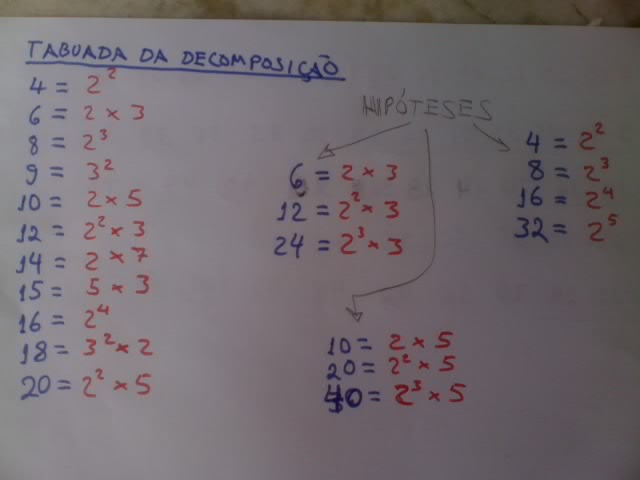 TABUADA DA DECOMPOSIÇÃO
4 = 2²
6 = 2 × 3
8 = 2³
9 = 3²
10 = 2 × 5
12 = 2² × 3
14 = 2 × 7
15 = 5 × 3
16 = 2⁴
18 = 3² × 2
20 = 2² × 5
HIPÓTESES
6 = 2 × 3
12 = 2² × 3
24 = 2³ × 3
4 = 2²
8 = 2³
16 = 2⁴
32 = 2⁵
10 = 2 × 5
20 = 2² × 5
40 = 2³ × 5